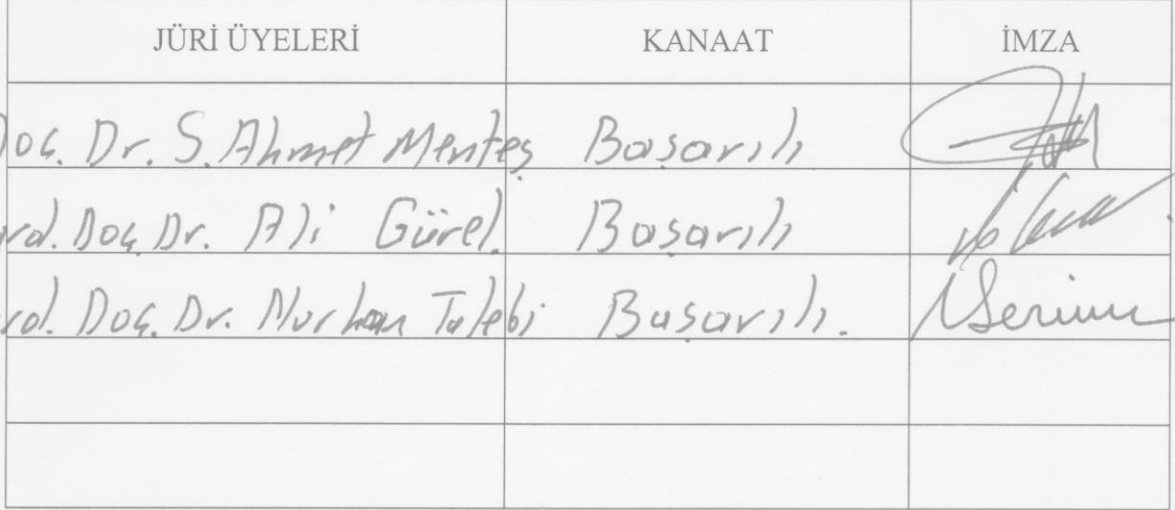 JÜRİ ÜYELERİ KANAAT İMZA
Doç. Dr. S. Ahmet Menteş Başarılı
rd. Doç. Dr. Ali Gürel. Başarılı
rd. Doç. Dr. Nurhan Talebi Başarılı.